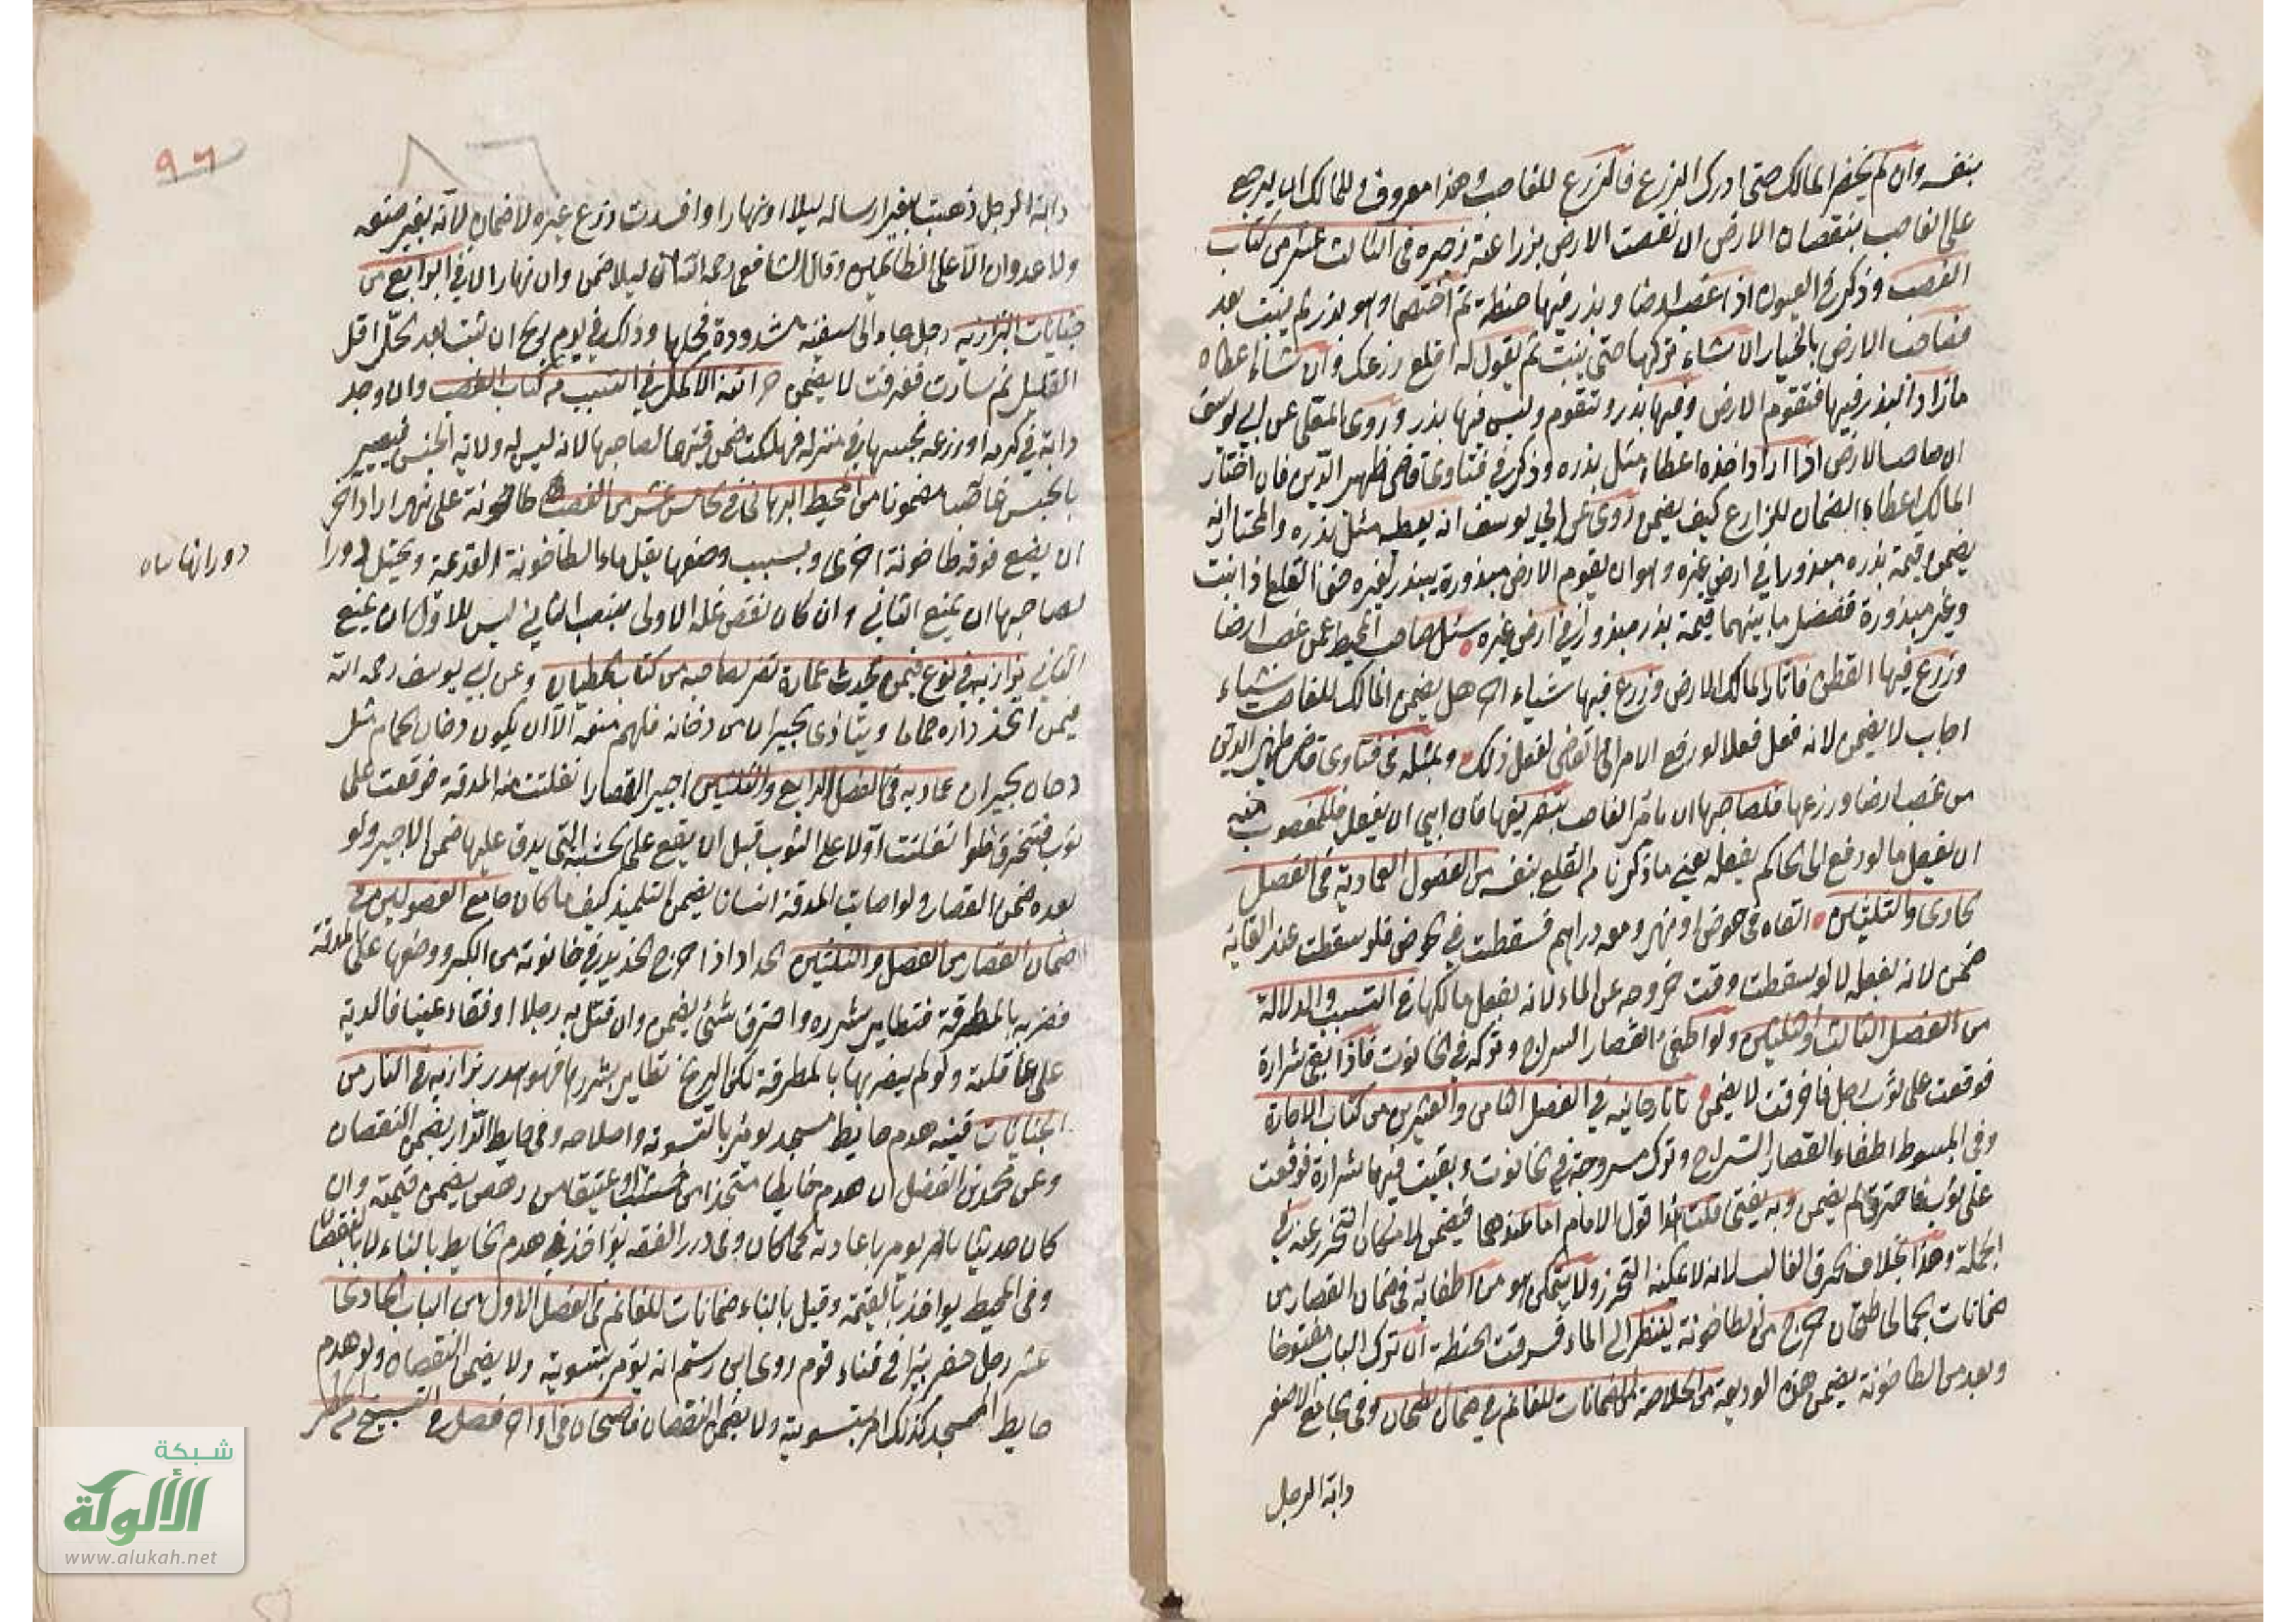 بنفسه وان لم يحضر المالك حتى ادرك الزرع فالزرع للغاصب وهذا معروف وللمالك ان يرجع
على الغاصب بنقصان الارض ان نقصت الارض بزراعته في الثالث عشر من كتاب
الغصب وذكر في العيون اذا غصب ارضا وبذر فيها حنطة ثم اختصما وهو بذر لم ينبت بعد
فصاحب الارض بالخيار ان شاء تركها حتى ينبت ثم يقول له اقلع زرعك وان شاء اعطاه
مازاد البذر فيها فتقوم الارض وفيها بذر وتقوم وليس فيها بذر وروى المعلى عن ابي يوسف
ان صاحب الارض اذا اراد اخذه اعطاه مثل بذره وذكر في فتاوى قاضي ظهير الدين فان اختار
المالك اعطاء الضمان للزارع كيف يضمن روى عن ابي يوسف انه يعطيه مثل بذره والمختار انه
يضمن قيمة بذره مبذورا في ارض غيره وهو ان يقوم الارض مبذورة ببذر لغيره حق القلع اذا نبت
وغير مبذورة ففضل ما بينهما قيمة بذر مبذور في ارض غيره سئل صاحب المحيط عمن غصب ارضا
وزرع فيها القطن فاثار المالك الارض وزرع فيها شياء اخر هل يضمن المالك للغاصب شياء
اجاب لا يضمن لانه فعل فعلا لو رفع الامر الى القاضي لفعل ذلك وبمثله في فتاوى قاضي ظهير الدين
من غصب ارضا وزرعها فلصاحبها ان يامر الغاصب بتفريغها فان ابى ان يفعل فللمغصوب منه
ان يفعل ما لو رفع الى الحاكم يفعله يعني ما ذكرنا من القلع بنفسه من الفصول العمادية في الفصل
الحادي والثلثين القاه في حوض او نهر ومعه دراهم فسقطت في الحوض فلو سقطت عند القائه
ضمن لانه بفعله لا لو سقطت وقت خروجه عن الماء لانه بفعل مالكها في التسبب والدلالة
من الفصل الثالث والثلثين ولو اطفئ القصار السراج وتركه في الحانوت فاذا بقي شرارة
فوقعت على ثوب رجل فاحرقت لا يضمن تاتارخانيه في الفصل الثامن والعشرين من كتاب الاجارة
وفي المبسوط اطفاء القصار السراج وترك مسرجة في الحانوت وبقيت فيها شرارة فوقعت
على ثوب فاحترق لم يضمن وبه يفتى قلت هذا قول الامام اما عندهما فيضمن لامكان التحرز عنه في
الجملة وهذا بخلاف الحرق الغالب لانه لا يمكنه التحرز ولا يتمكن هو من اطفائه في ضمان القصار من
ضمانات الجمالي طحان خرج من الطاحونة لينظر الى الماء فسرقت الحنطة ان ترك الباب مفتوحا
وبعد من الطاحونة يضمن هذه الوديعة من الخلاصة الضمانات للغانم في ضمان الطحان وفي الجامع الاصغر
دابة الرجل
٩٦
دابة الرجل ذهبت بغير ارساله ليلا او نهارا وافسدت زرع غيره لا ضمان لانه بغير صنعه
ولا عدوان الا على الظالمين وقال الشافعي رحمه الله ان ليلا ضمن وان نهارا لا في الرابع من
جنايات البزازيه رجل جاء الى سفينة مشدودة فحلها وذلك في يوم ريح ان ثبت بعد الحل اقل
القليل ثم سارت فغرقت لا يضمن خزانة الاكمل في التسبب من كتاب الغصب وان وجد
دابة في كرمه او زرعه فحبسها في منزله فهلكت ضمن قيمتها لصاحبها لانه ليس له ولاية الحبس فيصير
بالحبس غاصبا مضمونا من المحيط البرهاني في الخامس عشر من الغصب طاحونة على نهر اراد اخر
ان يضع فوقه طاحونة اخرى وبسبب وضعها يقل ماء الطاحونة القديمة ويختل دورا
دورانها ساه
لصاحبها ان يمنع الثاني وان كان نقص غلة الاولى بنصب الثاني ليس للاول ان يمنع
الثاني بزازيه في نوع فيمن يحدث عمارة تضر لصاحبه من كتاب الحيطان وعن ابي يوسف رحمه الله
فيمن اتخذ داره حماما ويتاذى الجيران من دخانه فلهم منعه الا ان يكون دخان الحمام مثل
دخان الجيران عماديه في الفصل الرابع والثلثين اجير القصار انفلتت منه المدقة فوقعت على
ثوب فتخرق فلو انفلتت اولا على الثوب قبل ان يقع على الخشبة التي يدق عليها ضمن الاجير ولو
بعده ضمن القصار ولو اصابت المدقة انسانا يضمن التلميذ كيف ما كان جامع الفصولين في
ضمان القصار من الفصل والثلثين الحداد اذا اخرج الحديد في حانوته من الكير ووضعها على المدقة
فضربه بالمطرقة فتطاير شرره واحترق شئ يضمن وان قتل به رجلا او فقاء عينا فالدية
على عاقلته ولو لم يضربها بالمطرقة لكن الريح تطاير بشررها فهو هدر بزازيه في النار من
الجنايات قنيه هدم حايط مسجد يومر بالتسوية واصلاحه وفي حايط الدار يضمن النقصان
وعن محمد بن الفضل ان هدم حايطا متخذا من خشب او عتيقا من رهص يضمن قيمته وان
كان حديثا يومر باعادته كما كان وفي درر الفقه يؤاخذ في هدم الحايط بالبناء لا بالنقصان
وفي المحيط يواخذ بالقيمة وقيل بالبناء ضمانات للغانم في الفصل الاول من الباب الحادي
عشر رجل حفر بئرا في فناء قوم روى ابن رستم انه يؤمر بتسويته ولا يضمن النقصان ولو هدم
حايط المسجد كذلك امر بتسويته ولا يضمن النقصان قاضيخان في اواخر فصل في
شبكة
الألوكة
www.alukah.net